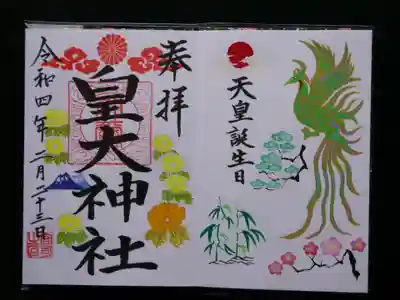 奉拝
皇大神社
令和四年二月二十三日
天皇誕生日